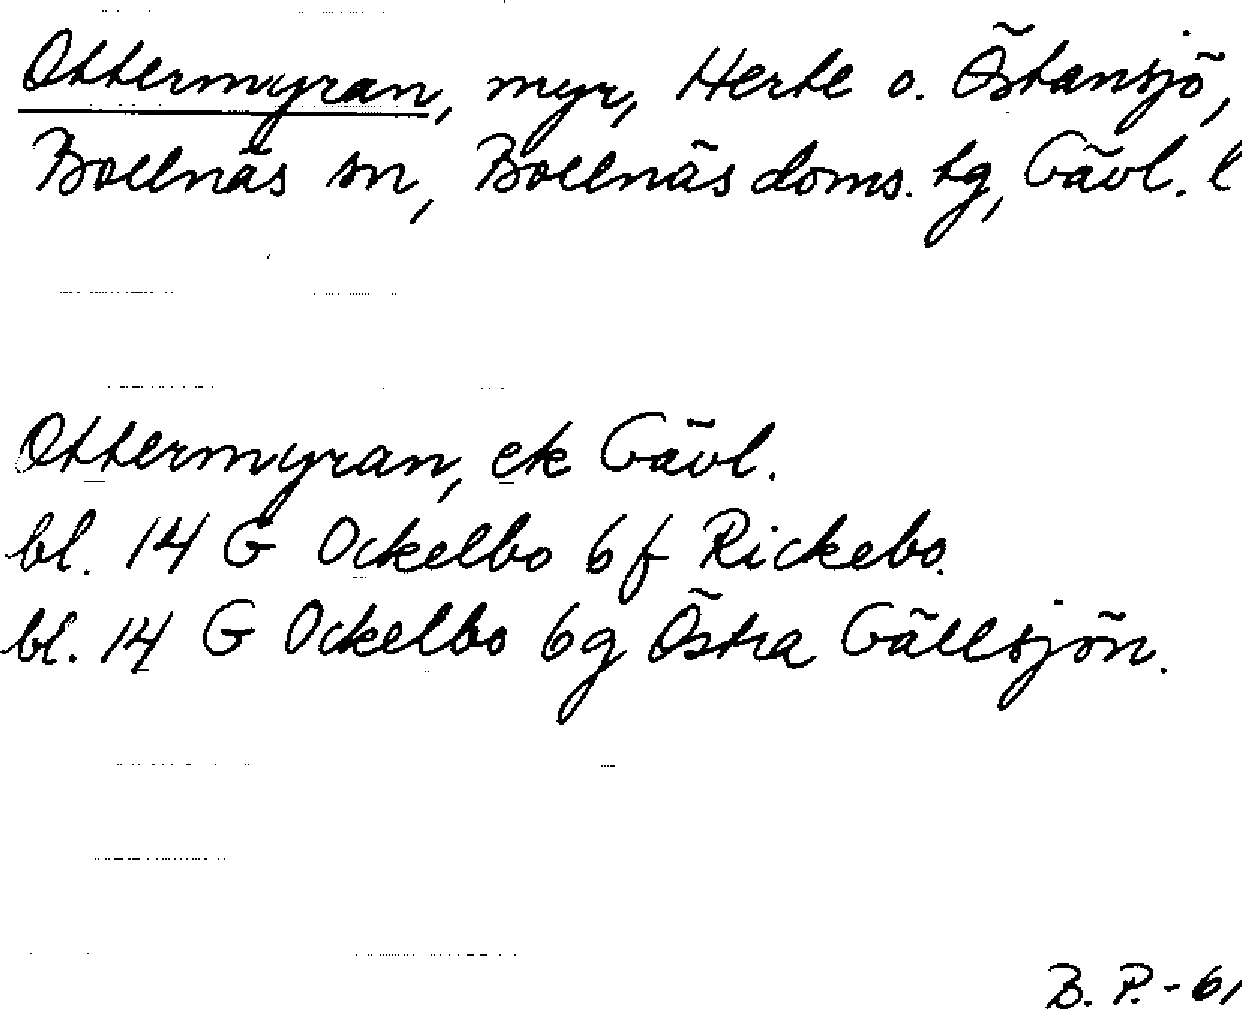 Ottermyran, myr, Herte o. Östansjö,
Bollnäs sn, Bollnäs doms. tg, Gävl. l
Ottermyran, ek Gävl.
bl. 14 G Ockelbo 6f Rickebo.
bl. 14 G Ockelbo 6g Östra Gällsjön.
B. P. - 61